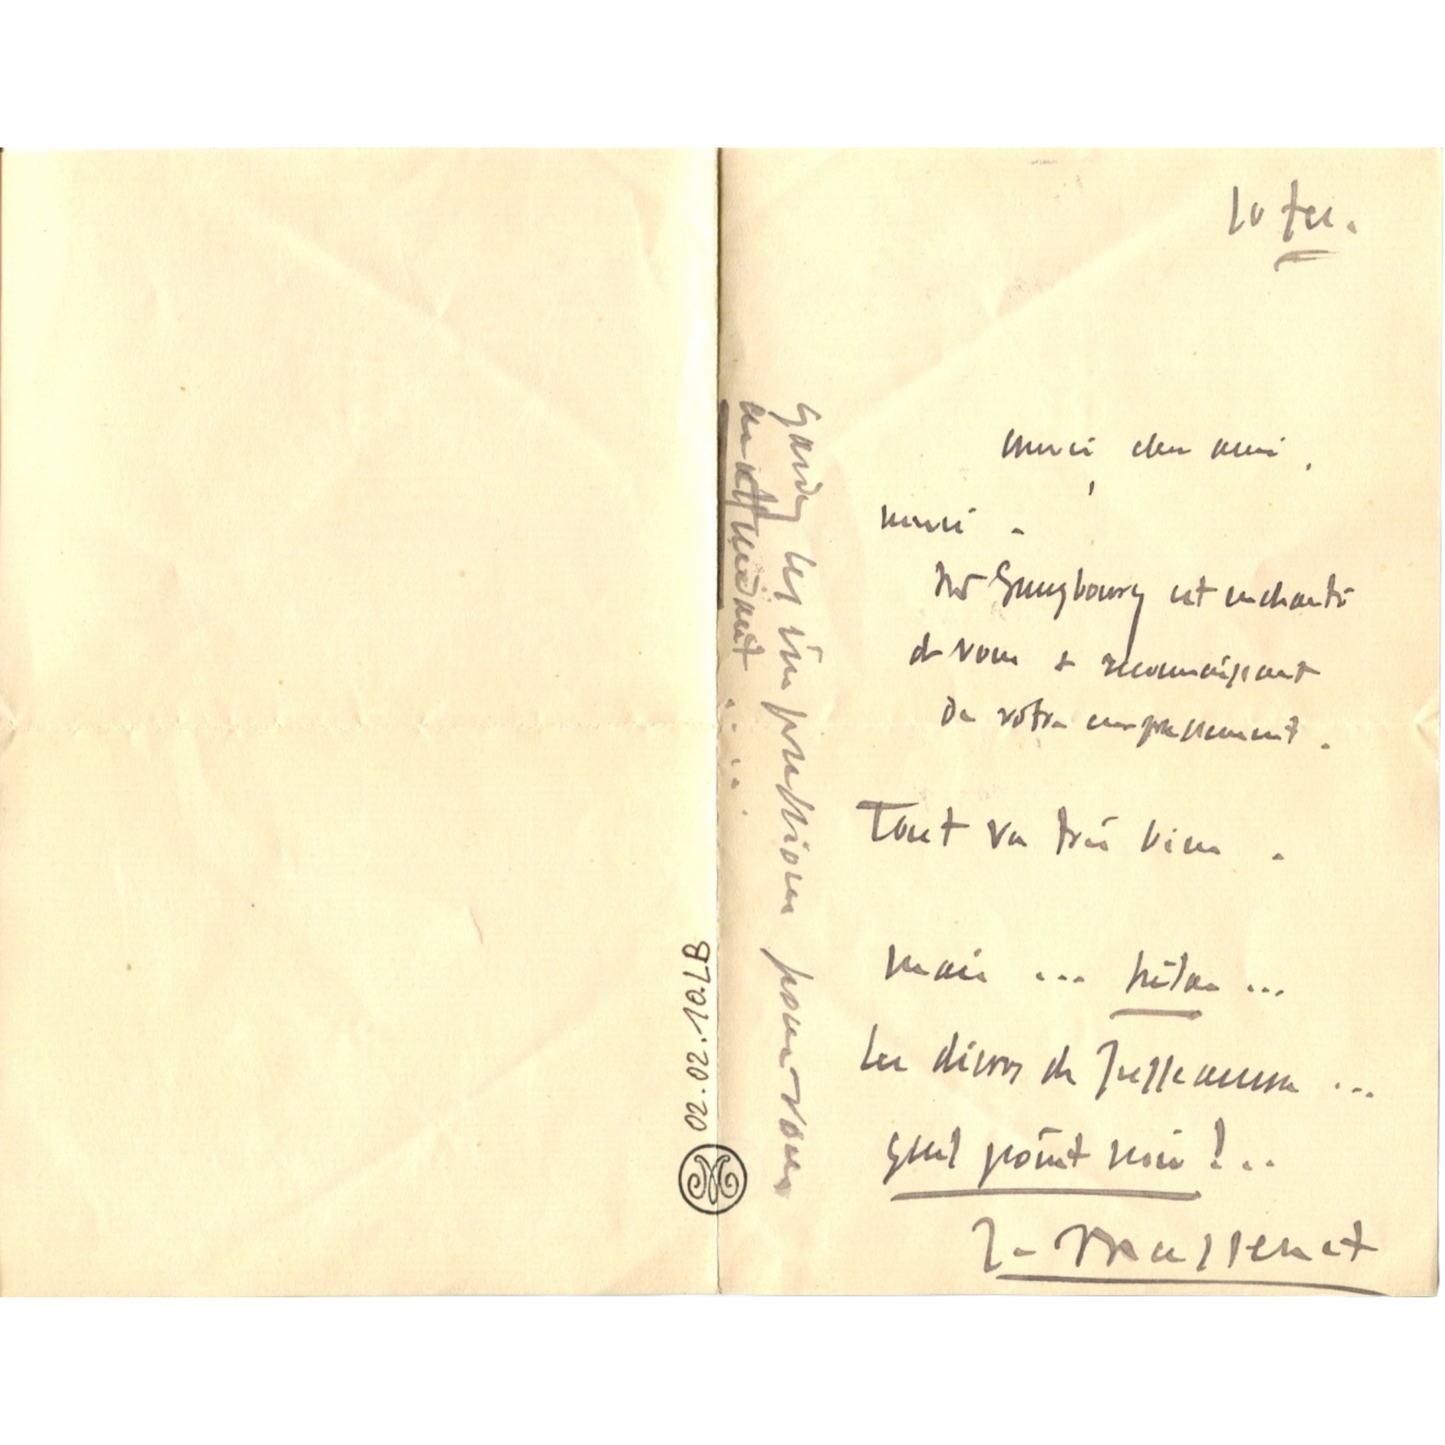 10 fev.
merci cher ami,
merci.
Mr Gunsbourg est enchanté
de vous & reconnaissant
de votre empressement.
Tout va très bien.
mais ... hélas ...
les décors de Jusseaume ...
quel point noir ! ..
J. Massenet
Gardez les impressions pour vous
en attendant .....
02.02.10.LB